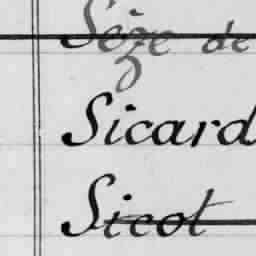 Sèze de
Sicard
Sicot